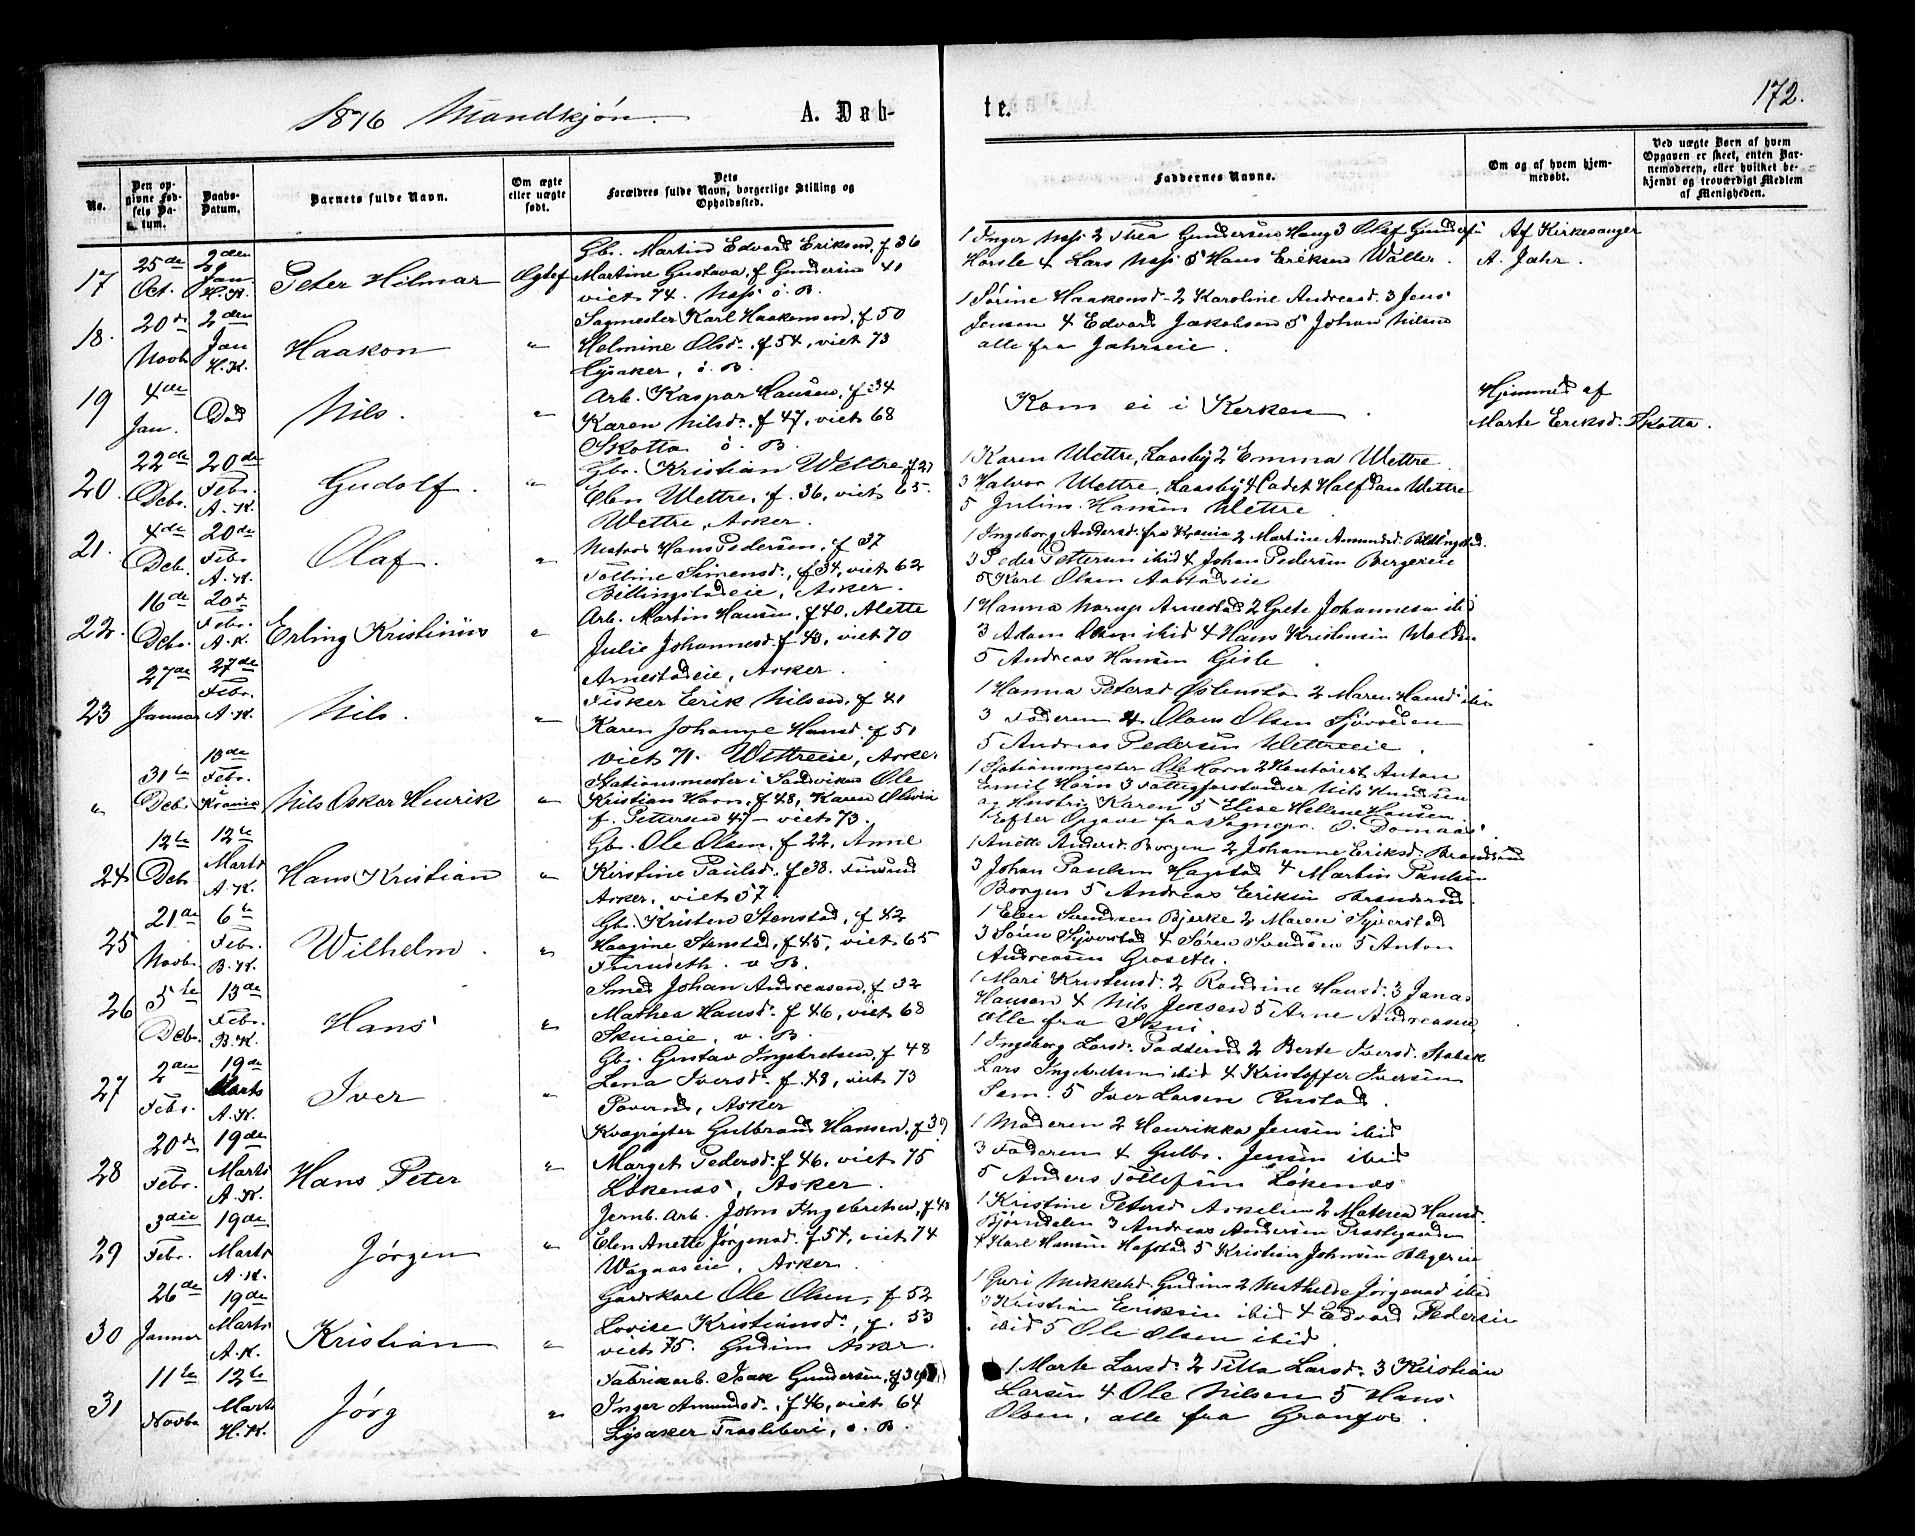 1876 Mandskjøn. A. Døb-
te.
172.
No.
Den op-
givne Fød-
sels Da-
tum.
Daabs-
Datum.
Barnets fulde Navn.
Om ægte
eller uægte
født.
Dets
Forældres fulde Navn, borgerlige Stilling og
Opholdssted.
Faddernes Navne.
Om og af hvem hjem-
medøbt.
Ved uægte Børn af hvem
Opgaven er skeet, enten Bar-
nemoderen, eller hvilket be-
kjendt og troværdigt Medlem
af Menigheden.
17
25de
Oct.
2den
Jan
H. K.
Peter Hilmar
Gbr. Martin Edvard Eriksen, f 36
Martine Gustava, f Gundersen 41
viet 74. Næs ø. B.
1 Inger Næs 2 Thea Gundersen Haug 3 Olaf
4 Lars Næs 5 Hans Eriksen
Af Kirkesanger
A. Jahr.
18.
20de
Novb.
2den
Jan
H. K.
Haakon
"
Sagmester Karl Haakensen, f 50
Helmine Olsd. f 54, viet 73
Lysaker, ø. B.
1 Sørine Haakensd. 2 Karoline Andreasd. 3 Jens
Jensen 4 Edvard Jakobsen 5 Johan Nilsen
alle fra Jahrseie.
19
4de
Jan.
Død
Nils.
"
Arb. Kaspar Hansen, f 34
Karen Nilsd. f 47, viet 68
Skotta ø. B.
Kom ei i Kerken.
Hjemmed af
Marte Eriksd. Skotta.
20.
22de
Debr.
20de
Febr.
A. K.
Gudolf.
"
Gbr. Kristian Wettre, f 27
Elen Wettre, f. 36, viet 65.
Wettre, Asker.
1 Karen Wettre, Laasby 2 Emma Wettre
3 Halvor Wettre, Laasby 4 Cadet Halfdan Wettre
5 Julius Hansen Wettre
21.
4de
Deb.
20de
Febr.
A. K.
Olaf.
"
Matros Hans Pedersen, f 37
Tolline Simensd., f 34, viet 62
Billingstadeie, Asker.
1 Ingeborg Andersd. fra Krania 2 Martine Amundsd. Billingstad.
3 Peder Pettersen ibid 4 Johan Pedersen Bergereie
5 Karl Olsen
22.
16de
Debr.
20de
Febr.
A. K.
Erling Kristinius
"
Arb. Martin Hansen, f 40. Alette
Julie Johannesd. f 43, viet 70
Arnestadeie, Asker.
1 Hanna Narup Arnestad 2 Grete Johannesen ibid
3 Adam Olsen ibid 4 Hans Kristensen
5 Andreas Hansen Gisle.
23
27de
Januar
27de
Febr.
A. K.
Nils.
"
Fisker Erik Nilsen, f 41
Karen Johanne Hansd. f 51
viet 71. Wettreeie, Asker.
1 Hanna Petersd Østensta 2 Maren Hansd ibid
3 Faderen 4 Olaus Olsen Sjøvolden
5 Andreas Pedersen Wettreeie.
"
31te
Debr.
13de
Febr.
i
Krania
Nils Oskar Henrik
"
Stationsmester i Sandviken Ole
Kristian Horn, f 48, Karen Olivia
f. Pettersen 47 – viet 73.
1 Stationsmester Ole Horn 2 Kontorist Anton
Emil Horn 3 Fattigforstander Nils Knudsen
og Hustru Karen 5 Elise Hellene Hansen.
Efter Opgave fra Sognepr. O. Domaas
24
12te
Deb
12te
Marts
A. K.
Hans Kristian
"
Gbr. Ole Olsen, f 22, Anne
Kirstine Paulsd. f 38. Finsrud
Asker, viet 57
1 Anette Andersd. Borgen 2 Johanne Eriksd. Brendsrud
3 Johan Paulsen Hagstad 4 Martin Paulsen
Borgen 5 Andreas Eriksen Brendsrud.
25
21de
Novb.
6te
Febr.
B. K.
Wilhelm.
"
Gbr. Kristen Stenstad, f 42
Haagine Stenstad, f 45, viet 65
v. B.
1 Elen Svendsen Bjerke 2 Maren Syverstad
3 Søren Syverstad 4 Søren Svendsen 5 Anton
Andreasen Groseth.
26
5te
Debr.
13de
Febr.
B. K.
Hans
"
Smed Johan Andreasen, f 32
Mathea Hansd. f 46, viet 68
Skuieie, v. B.
1 Mari Kristensd. 2 Randine Hansd. 3 Jonas
Hansen 4 Nils Jensen 5 Arne Andreasen
alle fra Skui.
27
2den
Febr.
19de
Marts
A. K.
Iver
"
Gbr. Gustav Ingebretsen, f 48
Lena Iversd. f 49, viet 73
Poverud, Asker
1 Ingeborg Larsd. 2 Berte Iversd. Stabek
Lars Ingebretsen ibid 4 Kristoffer Iversen
Sem. 5 Iver Larsen
28
20de
Febr.
19de
Marts
A. K.
Hans Peter
"
Kvægrøgter Gulbrand Hansen, f 39
Marget Pedersd. f 46, viet 75
Løkenæs, Asker.
1 Moderen 2 Henrikka Jensen ibid
3 Faderen 4 Gulbr. Jensen ibid
5 Anders Tollefsen Løkenæs
29
3die
Febr.
19de
Marts
A. K.
Jørgen
"
Jernb. Arb. Johs Ingebretsen, f 48
Elen Anette Jørgensd. f 54, viet 74
Asker.
1 Kristine Petersd Askelien 2 Mathea Hansd.
Bjørndalen 3 Andreas Andersen Præstegaarden
4 Karl Hansen Hofstad 5 Kristian Johnsen
30
26de
Januar
19de
Marts
A. K.
Kristian
"
Gardskarl Ole Olsen, f 52
Lovise Kristiansd., f. 53
viet 75. Gudim Asker.
1 Guri Mikkelsd. Gudim 2 Mathilde Jørgensd ibid
3 Kristian Eriksen ibid 4 Edvard Pedersen
ibid 5 Ole Olsen ibid.
31
11te
Novbr
12te
Marts
H. K.
Jørg
"
Fabrikarb. Isak Gundersen, f 39
Inger Amundsd., f 46, viet 64
Lysaker ø. B.
1 Marte Larsd. 2 Petta Larsd. 3 Kristian
Larsen 4 Ole Nilsen 5 Hans
Olsen, alle fra Granfos.